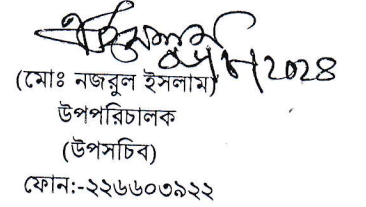 ২০২৪
(মোঃ নজরুল ইসলাম)
উপপরিচালক
(উপসচিব)
ফোন:-২২৬৬০৩৯২২